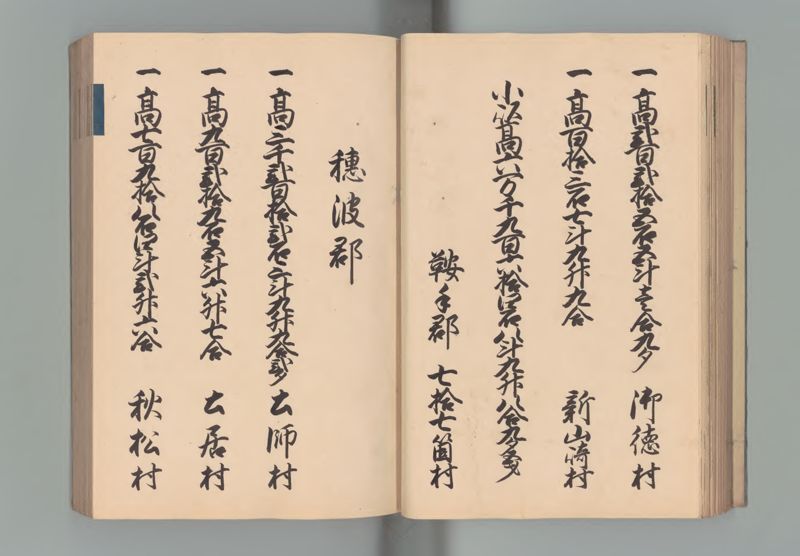 一高弐百弐拾五石五斗壱合九夕 御徳村
一高百拾三石七斗九升九合 新山崎村
小以高六万千九百六拾四石八斗九升八合九夕
鞍手郡 七拾七箇村
穂波郡
一高三千弐百拾弐石三斗九升九合弐夕 土師村
一高九百弐拾九石五斗六升七合 土居村
一高七百九拾八石四斗弐升六合 秋松村